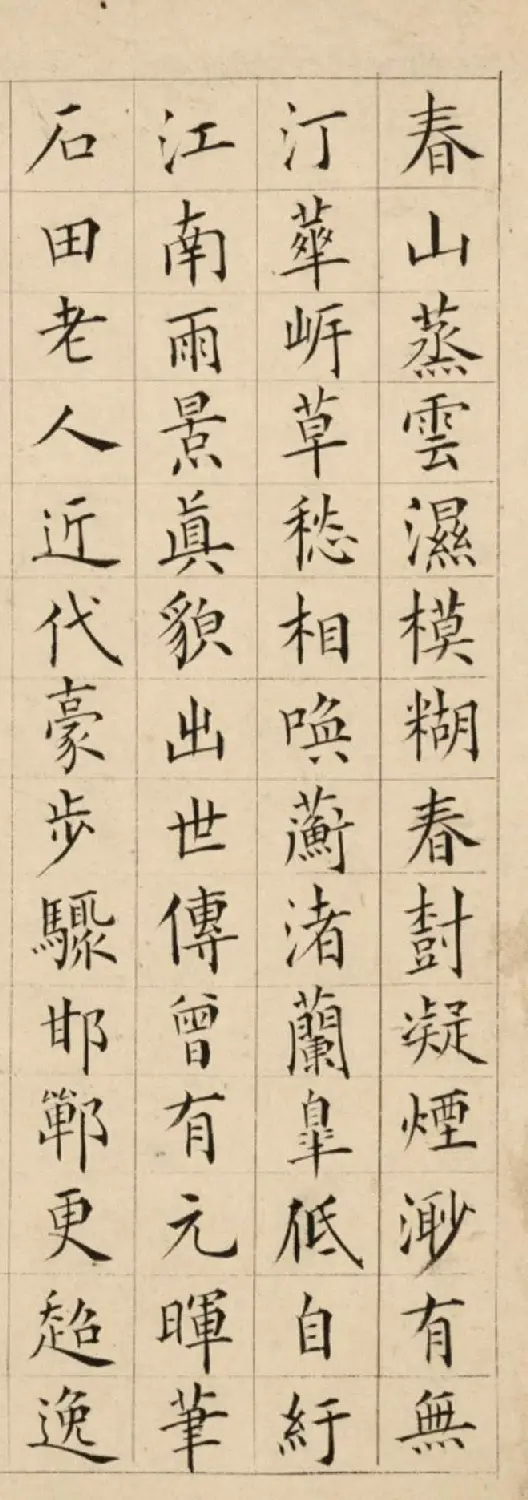 春山蒸雲濕模糊春樹凝煙渺有無
汀華岸草愁相喚蘅渚蘭皋低自紆
江南雨景真貌出世傳曾有元暉筆
石田老人近代豪步驟邯鄲更超逸